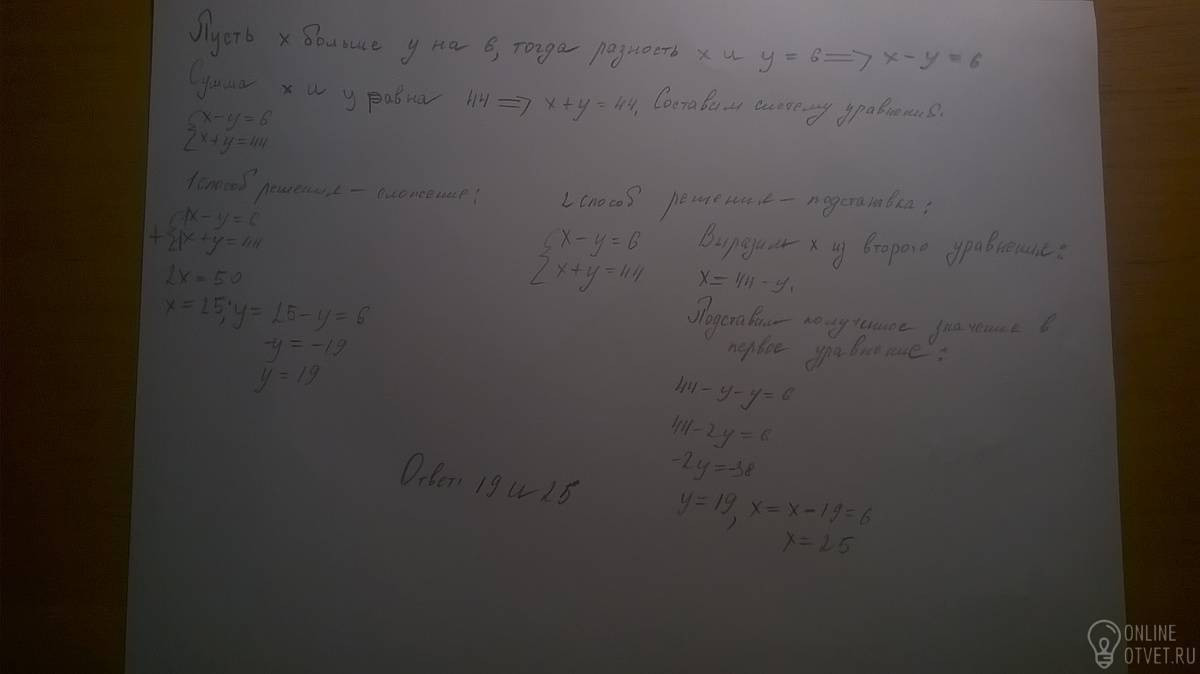 Пусть x больше y на 6, тогда разность x и y = 6 => x - y = 6
Сумма x и y равна 44 => x + y = 44. Составим систему уравнений.
{x - y = 6
{x + y = 44
1 способ решения - сложение:
+ {x - y = 6
{x + y = 44
2x = 50
x = 25; y = 25 - y = 6
-y = -19
y = 19
2 способ решения - подстановка:
{x - y = 6
{x + y = 44
Выразим x из второго уравнения:
x = 44 - y.
Подставим полученное значение в
первое уравнение:
44 - y - y = 6
44 - 2y = 6
-2y = -38
y = 19, x = x - 19 = 6
x = 25
Ответ: 19 и 25
ONLINE
OTVET.RU